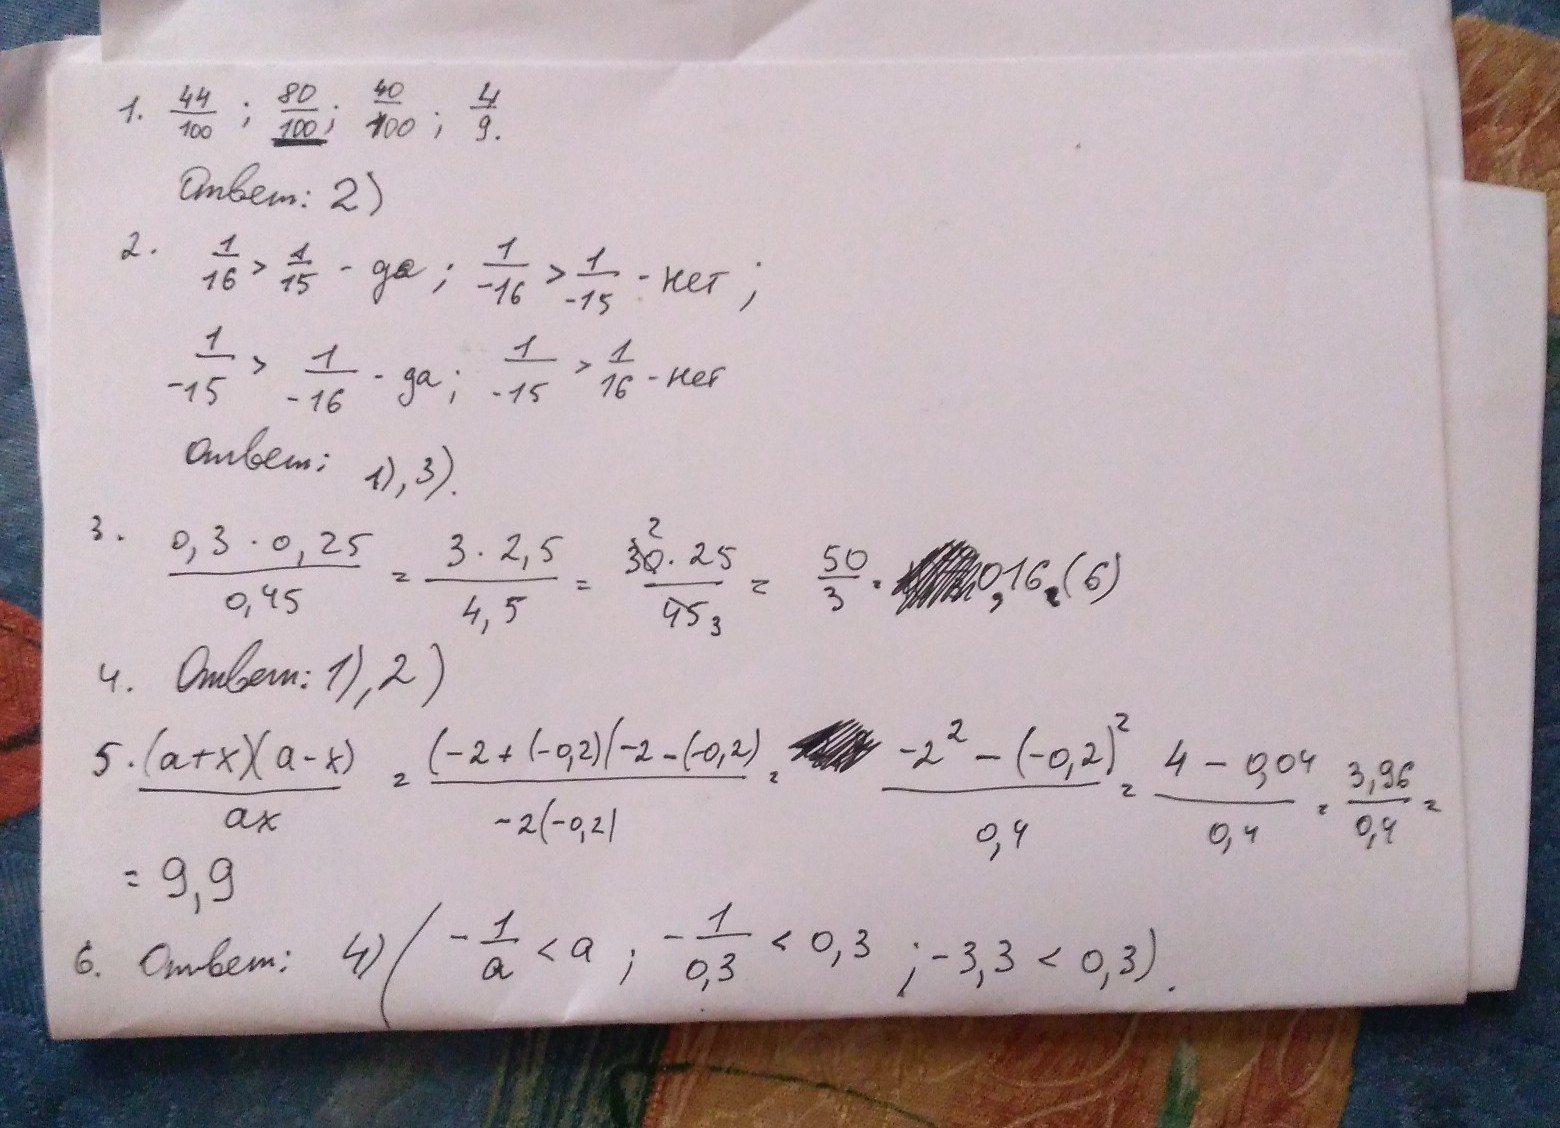 1. 44/100 ; 80/100 ; 40/100 ; 4/9.
Ответ: 2)
2. 1/16 > 1/15 - да ; 1/-16 > 1/-15 - нет ;
1/-15 > 1/-16 - да ; 1/-15 > 1/16 - нет
Ответ: 1), 3).
3. 0,3 · 0,25/0,45 = 3 · 2,5/4,5 = 30 2 · 25/45 3 = 50/3 = 0,16,(6)
4. Ответ: 1), 2)
5. (a+x)(a-x)/ax = (-2+(-0,2)(-2-(-0,2)/-2(-0,2) = -2² - (-0,2)²/0,4 = 4 - 0,04/0,4 = 3,96/0,4 =
= 9,9
6. Ответ: 4) ( -1/a < a ; -1/0,3 < 0,3 ; -3,3 < 0,3).